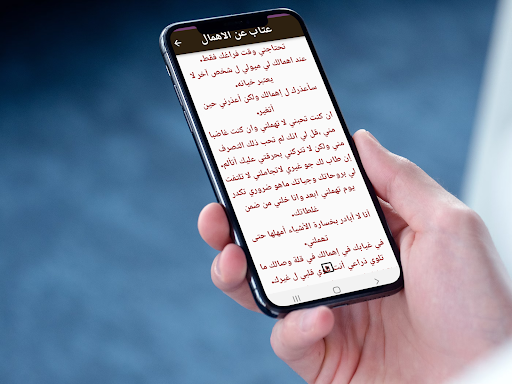 عتاب عن الاهمال
تحتاجني وقت فراغك فقط.
عند اهمالك لي ميولي ل شخص آخر لا
يعتبر خيانه.
سأعذرك ل إهمالك ولكن أعذرني حين
أتغير.
إن كنت تحبني لا تهملني وان كنت غاضبا
مني ،قل لي انك لم تحب ذلك التصرف
مني ولكن لا تتركني بحرقتي عليك أتألم.
إن طاب لك جو غيري لاتجاملني لا تلتفت
لي بروحاتك وجياتك ماهو ضروري تكدر
يوم تهملني ابعد وانا خلني من ضمن
غلطاتك.
أنا لا أبادر بخسارة الأشياء أمهلها حتى
تهملني.
في غيابك في إهمالك في قلة وصالك ما
تلوي ذراعي قلبي ل غيرك.